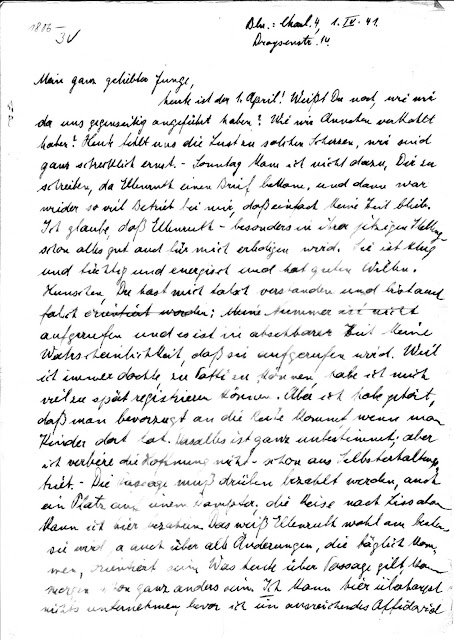 1886
3V
Bln.: Charl. 4, 1. IV. 41.
Droysenstr. 14
Mein ganz geliebter Junge,
heute ist der 1. April! Weißt Du noch, wie wir
da uns gegenseitig angeführt haben? Wie wir Annchen verkohlt
haben? Heut fehlt uns die Lust zu solchen Scherzen, wir sind
ganz schrecklich ernst. - Sonntag kam ich nicht dazu, Dir zu
schreiben, da Ellenruth einen Brief bekam, und dann war
wieder so viel Betrieb bei mir, daß einfach keine Zeit blieb.
Ich glaube, daß Ellenruth - besonders in ihrer jetzigen Stellung
schon alles gut auch für mich erledigen wird. Sie ist klug
und tüchtig und energisch und hat guten Willen.
Hänschen, Du hast mich falsch verstanden und bist auch
falsch orientiert worden: Meine Nummer ist nicht
aufgerufen und es ist in absehbarer Zeit keine
Wahrscheinlichkeit, daß sie aufgerufen wird. Weil
ich immer dachte, zu Vatti zu können, habe ich mich
viel zu spät registrieren können. Aber ich habe gehört,
daß man bevorzugt an die Reihe kommt wenn man
Kinder dort hat. alles ist ganz unbestimmt; aber
ich verliere die Hoffnung nicht - schon aus Selbsterhaltungs
trieb. - Die Passage muß drüben bezahlt werden, auch
ein Platz auf einem Dampfer, die Reise nach Lissabon
kann ich hier bezahlen. Das weiß Ellenruth wohl am besten,
sie wird ja auch über alle Änderungen, die täglich kom-
men, orientiert sein. Was heute über Passage gilt kann
morgen schon ganz anders sein. Ich kann hier überhaupt
nichts unternehmen, bevor ich ein ausreichendes Affidavid